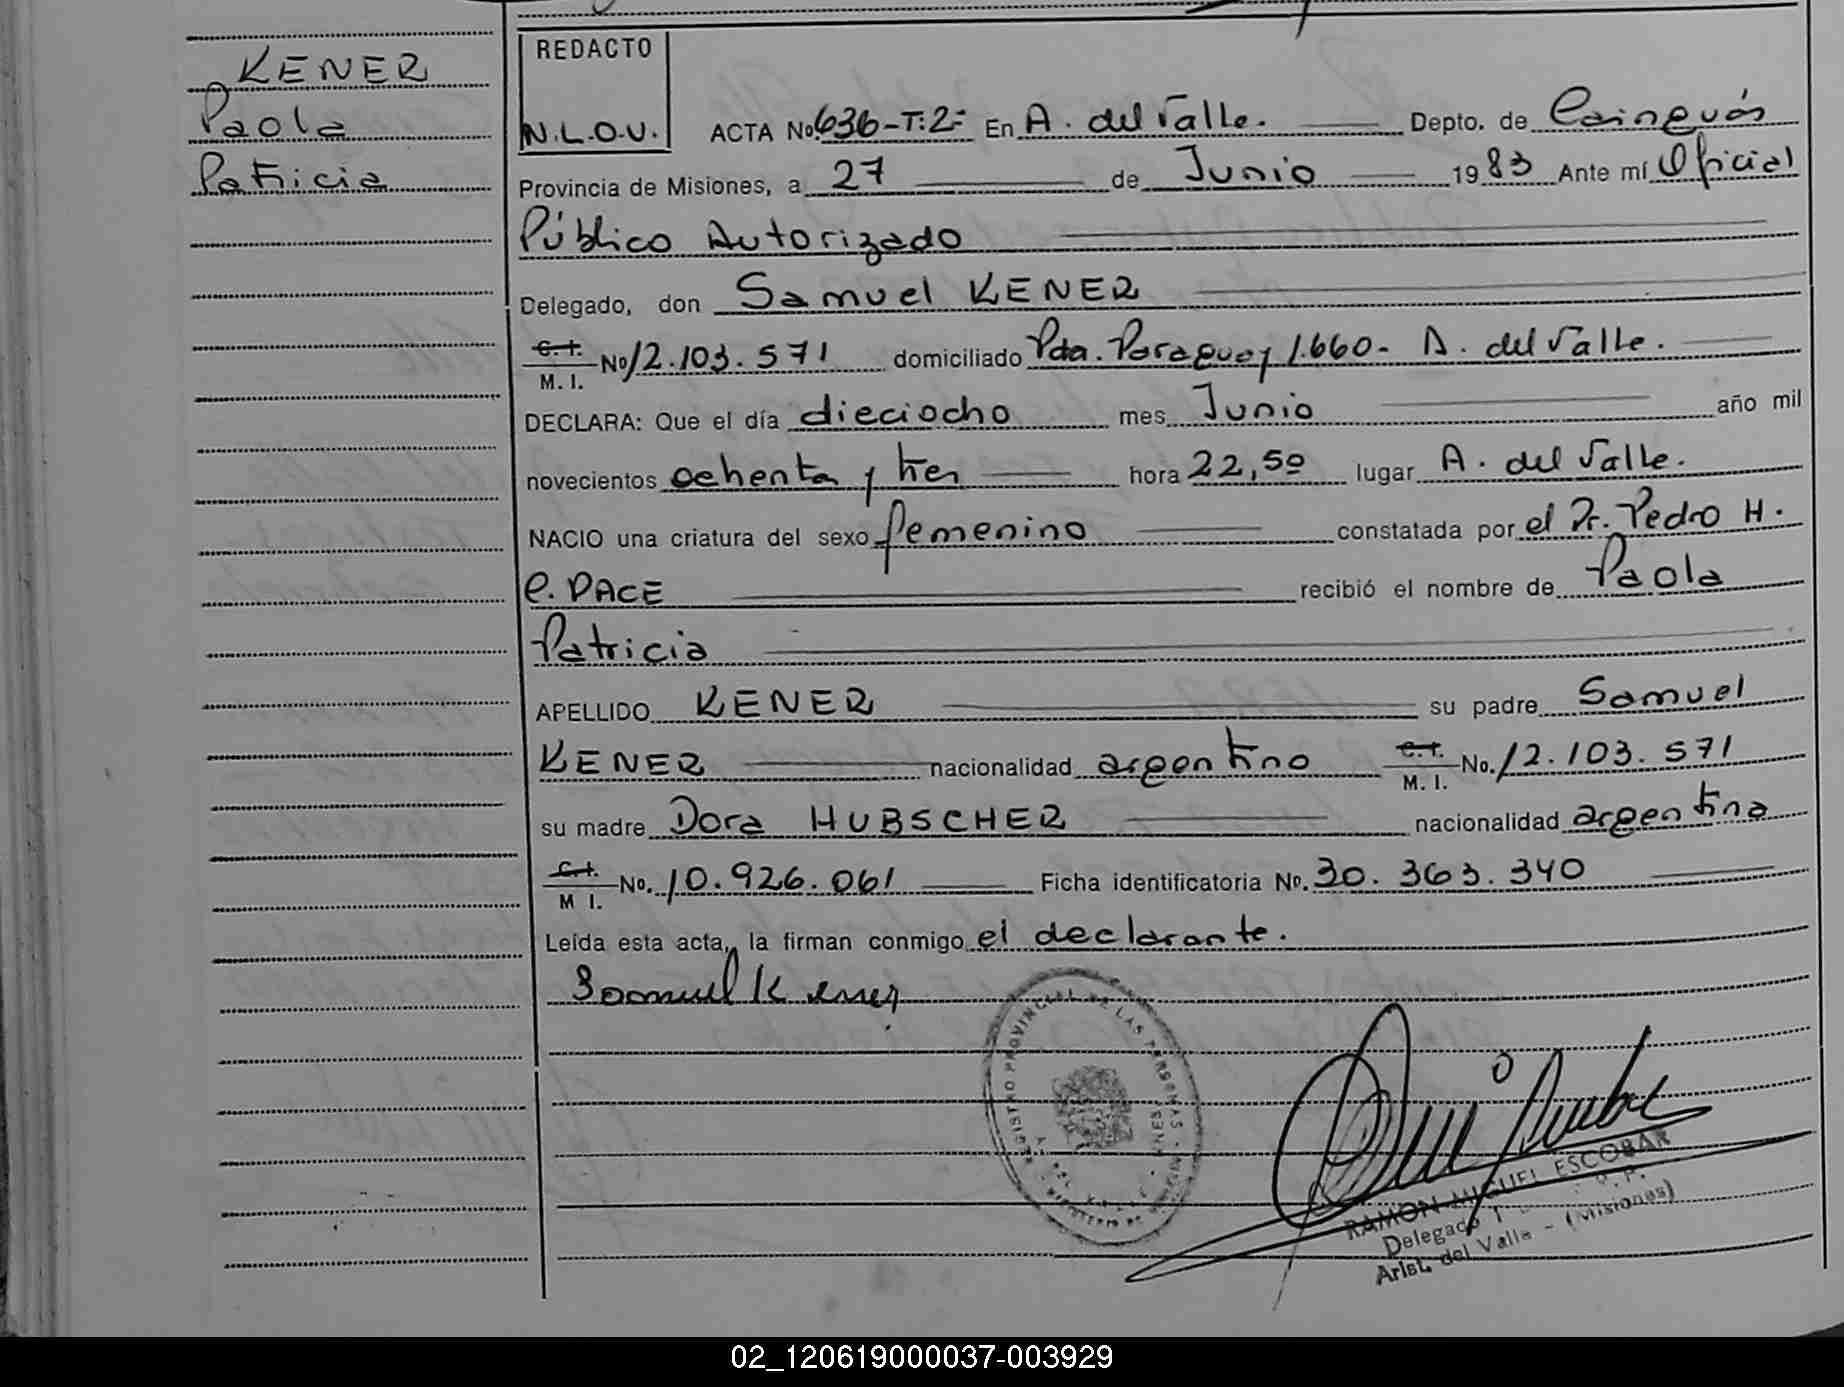 KENER
Paola
Patricia
REDACTO
N.L.O.V.
ACTA No 636-T:2- En A. del Valle. Depto. de Cainguás
Provincia de Misiones, a 27 de Junio 1983 Ante mí Oficial
Público Autorizado
Delegado, don Samuel KENER
C.I.
M. I. No 12.103.571 domiciliado Pda. Paraguay 1.660- A. del Valle.
DECLARA: Que el día dieciocho mes Junio año mil
novecientos ochenta y tres hora 22,50 lugar A. del Valle.
NACIO una criatura del sexo femenino constatada por el Dr. Pedro H.
C. PACE recibió el nombre de Paola
Patricia
APELLIDO KENER su padre Samuel
KENER nacionalidad argentino C.I. M. I. No. 12.103.571
su madre Dora HUBSCHER nacionalidad argentina
C.I.
M I. No. 10.926.061 Ficha identificatoria No. 30.363.340
Leída esta acta, la firman conmigo el declarante.
Samuel Kener
REGISTRO PROVINCIAL DE LAS PERSONAS
RAMON MIGUEL ESCOBAR
Delegado
Arist. del Valle - (Misiones)
02_120619000037-003929